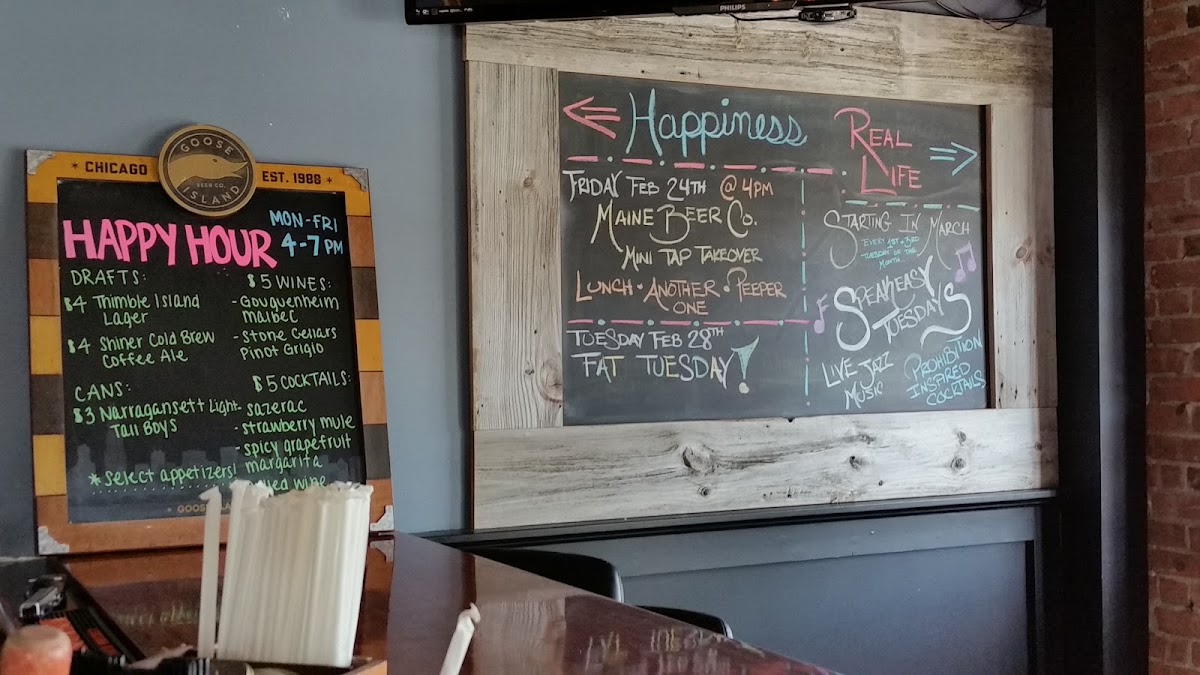 PHILIPS
CHICAGO
GOOSE
BEER CO.
ISLAND
EST. 1988
HAPPY HOUR
MON-FRI
4-7 PM
DRAFTS:
$4 Thimble Island
Lager
$4 Shiner Cold Brew
Coffee Ale
CANS:
$3 Narragansett Light
Tall Boys
*select appetizers!
$5 WINES:
- Gouguenheim
malbec
- Stone Cellars
Pinot Grigio
$5 COCKTAILS:
- sazerac
- strawberry mule
- spicy grapefruit
margarita
wine
GOOSE
Happiness
FRIDAY FEB 24TH @ 4PM
MAINE BEER CO.
MINI TAP TAKEOVER
LUNCH • ANOTHER • PEEPER
ONE
TUESDAY FEB 28TH
FAT TUESDAY!
REAL
LIFE
STARTING IN MARCH
EVERY 1ST + 3RD
TUESDAY OF THE
MONTH
SPEAKEASY
TUESDAYS
LIVE JAZZ
MUSIC
PROHIBITION
INSPIRED
COCKTAILS